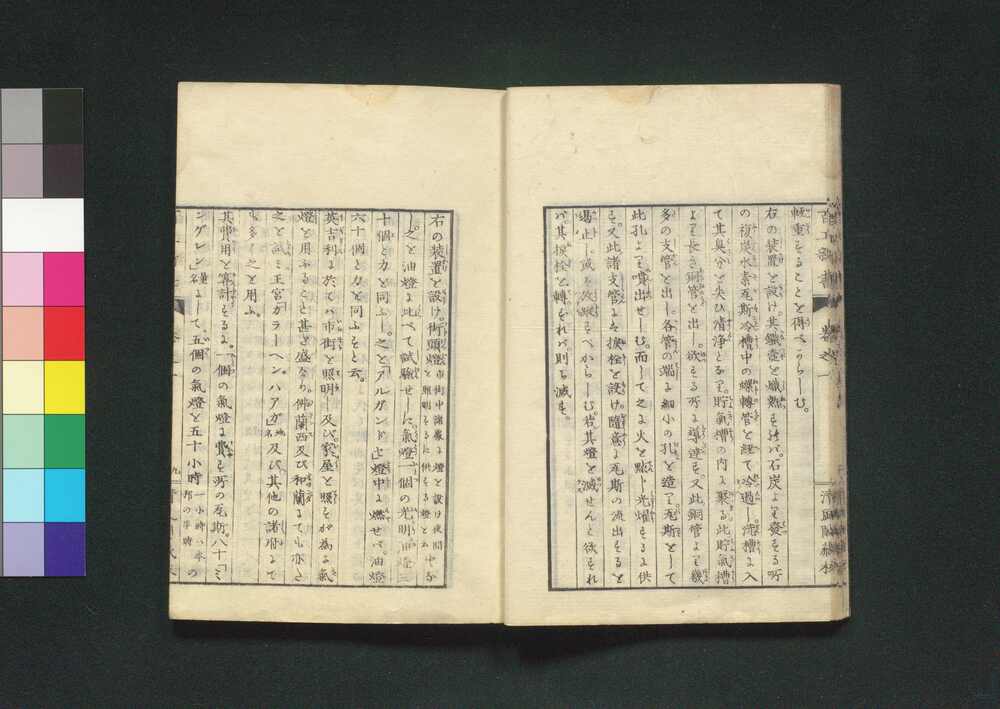 軽重スルヿヲ得ベカラシム。
右の装置を設け。其鐵壺を熾熱すれバ。石炭より發する所
の複炭水素瓦斯冷槽中の螺轉管を經て冷過し。洗槽に入
て其臭分を失ひ清浄となり。貯氣槽の内に聚る。此貯氣槽
より長き銅管を出し。欲する所に導達す。又此銅管より幾
多の支管を出し。各管の端に細小の孔を造り。瓦斯をして
此孔より噴出せしむ。而して之に火を點じ光燿するに供
す。又此諸支管に各捩栓を設け。隨意に瓦斯の流出するを
遏止し或ハ放縦すべからしむ。若其燈を滅せんと欲すれ
バ。其捩栓を轉ずれバ則ち滅す。
右の装置を設け。街頭燈 市街中諸嚴に燈を設け夜間
之を油燈に比べて試驗せしに。氣燈一個の光明油燈三
十個と力を同ふし。之を「アルガンド」燈中に燃せバ。油燈
六十個と力を同ふすと云。
英吉利に於てハ市街を照明し及び家屋を照すが為に氣
燈を用ふること甚だ盛なり。佛蘭西及び和蘭にても亦之
之を試ミ王宮「ガラーヘン。ハアガ」地名及び其他の諸府にて
も多く之を用ふ。
其費用を算計するに。一個の氣燈に費す所の瓦斯。八十「ミ
ングレン」量名にして五個の氣燈を五十小時 一小時ハ本邦の半時